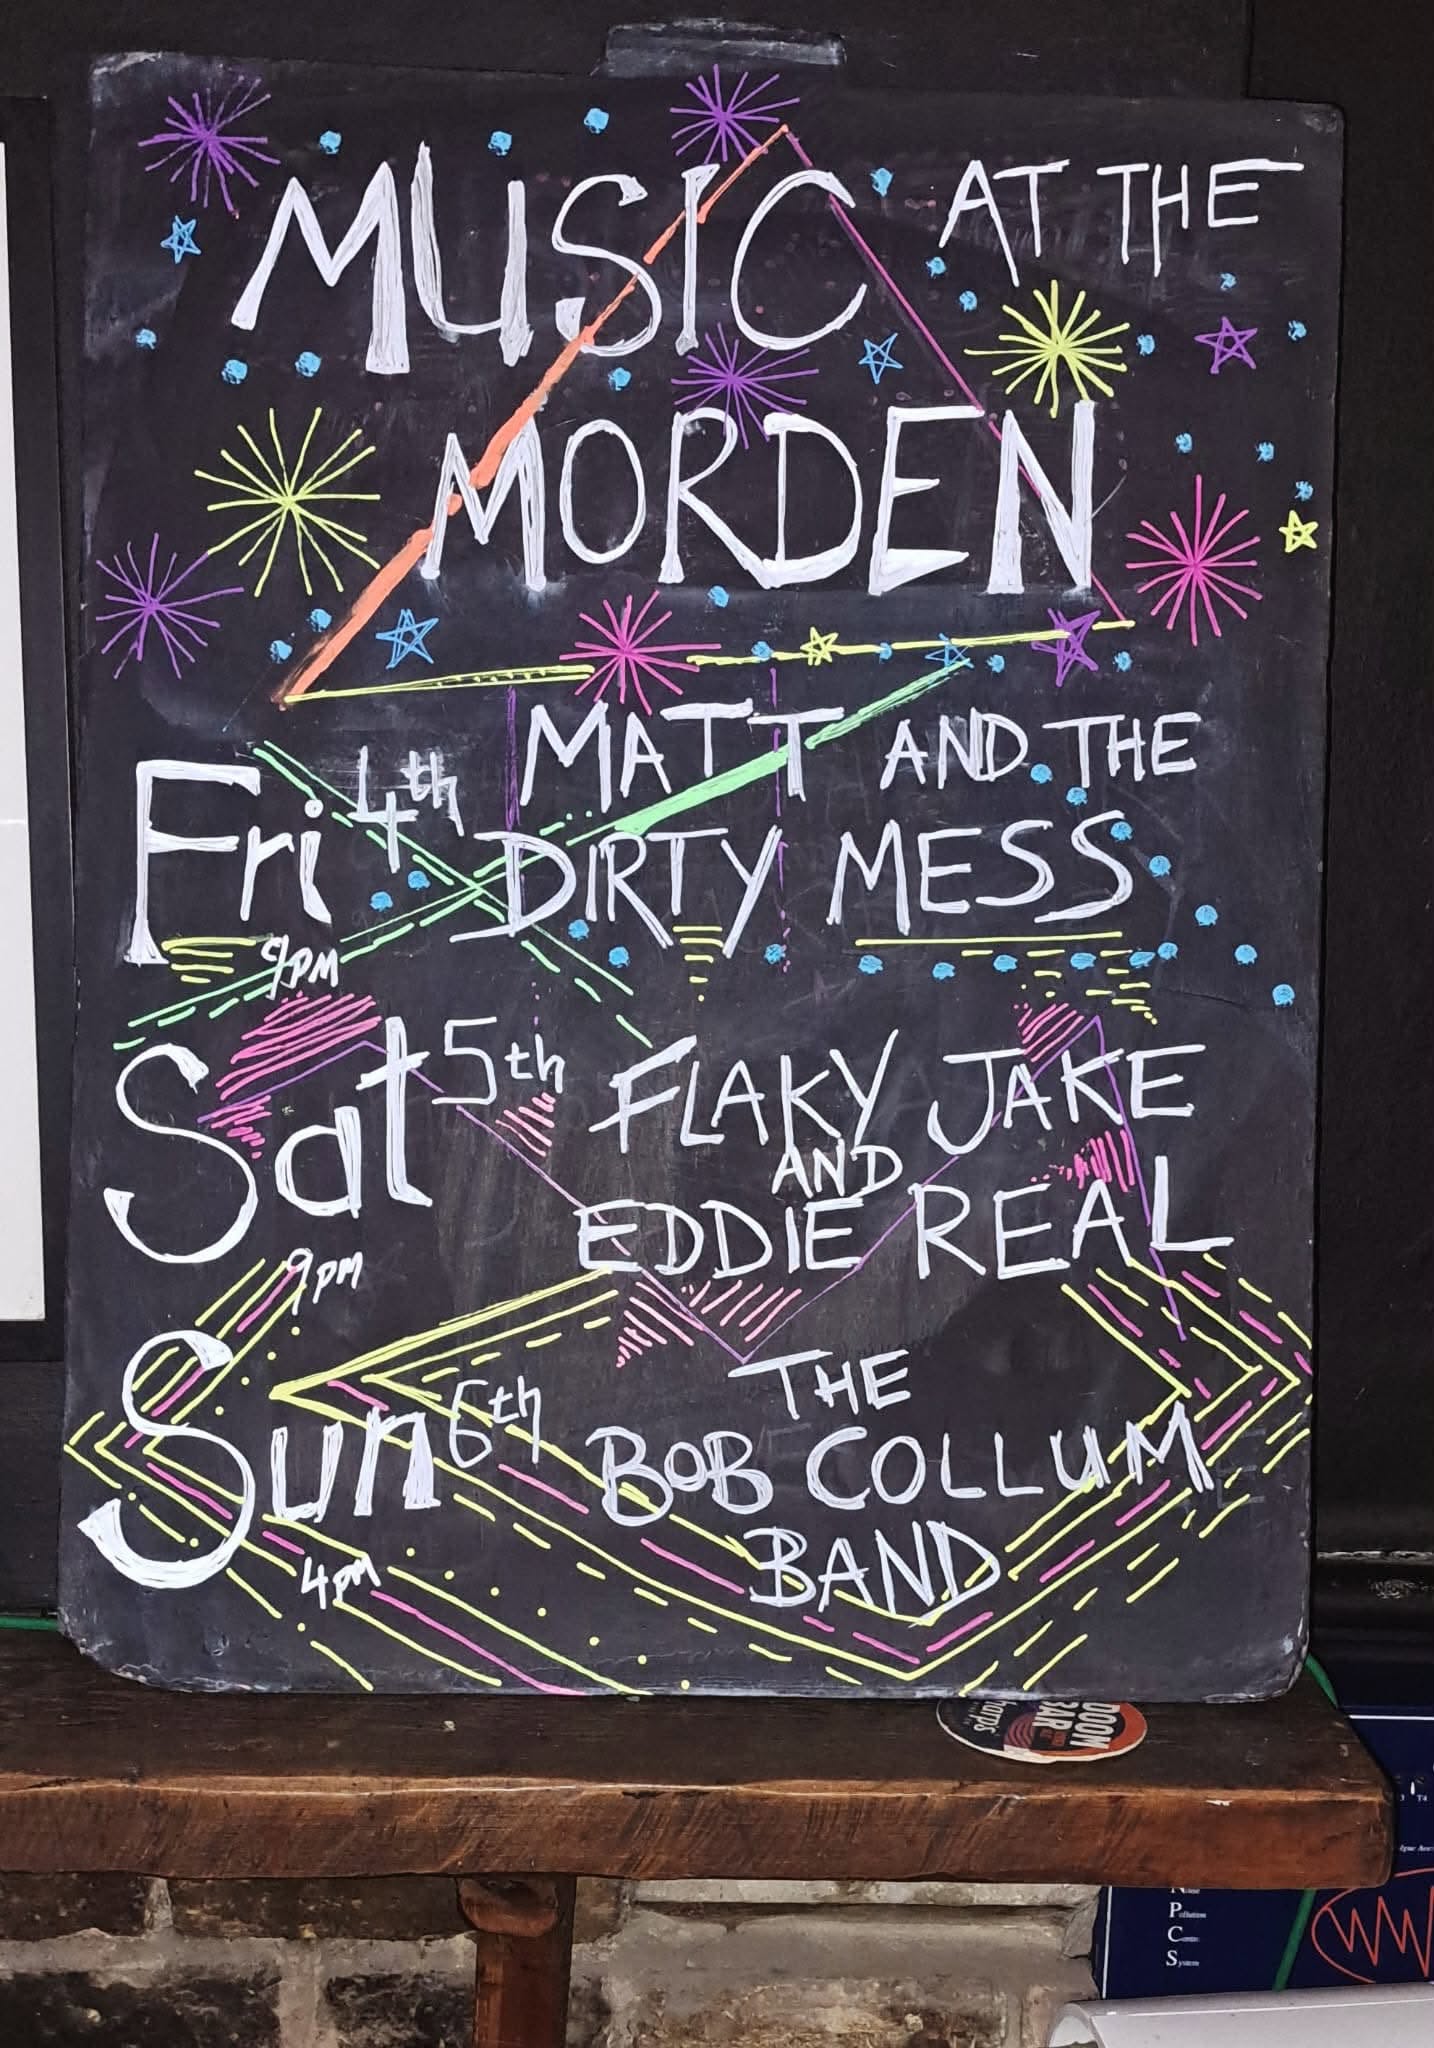 MUSIC AT THE
MORDEN
Fri 4th MATT AND THE
DIRTY MESS
9PM
Sat 5th FLAKY JAKE
AND
EDDIE REAL
9PM
Sun 6th THE
BOB COLLUM
BAND
4PM
DOOM
BAR
Sharp's
Noise
Pollution
Control
System